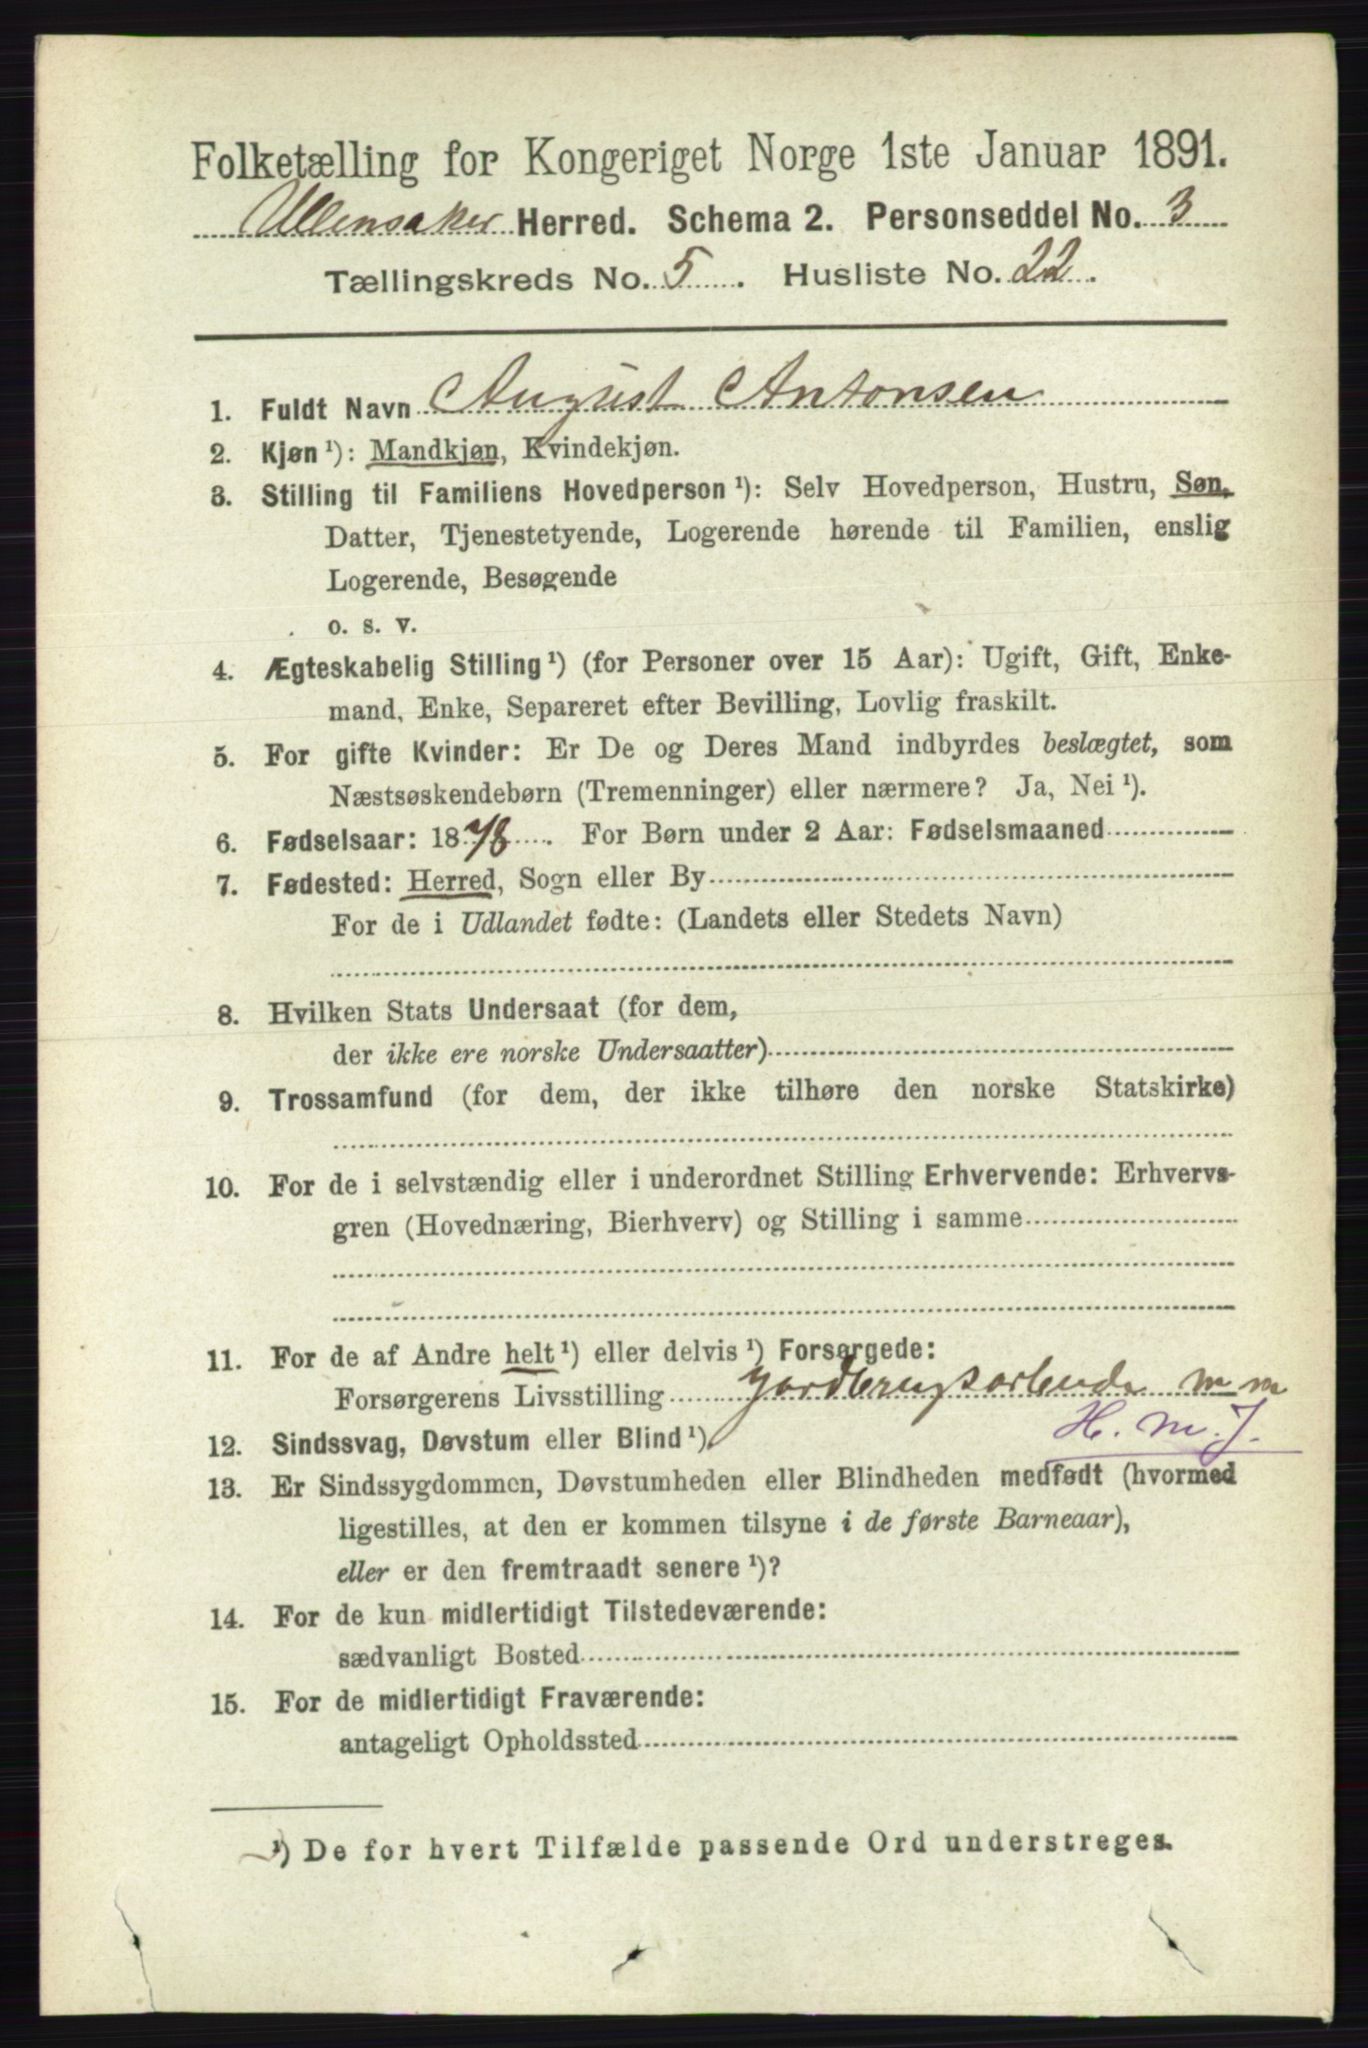 Folketælling for Kongeriget Norge 1ste Januar 1891.
Ullensaker Herred. Schema 2. Personseddel No. 3
Tællingskreds No. 5. Husliste No. 22.
1. Fuldt Navn August Antonsen
2. Kjøn ¹): Mandkjøn, Kvindekjøn.
3. Stilling til Familiens Hovedperson ¹): Selv Hovedperson, Hustru, Søn,
Datter, Tjenestetyende, Logerende hørende til Familien, enslig
Logerende, Besøgende
o. s. v.
4. Ægteskabelig Stilling ¹) (for Personer over 15 Aar): Ugift, Gift, Enke-
mand, Enke, Separeret efter Bevilling, Lovlig fraskilt.
5. For gifte Kvinder: Er De og Deres Mand indbyrdes beslægtet, som
Næstsøskendebørn (Tremenninger) eller nærmere? Ja, Nei ¹).
6. Fødselsaar: 1878. For Børn under 2 Aar: Fødselsmaaned
7. Fødested: Herred, Sogn eller By
For de i Udlandet fødte: (Landets eller Stedets Navn)
8. Hvilken Stats Undersaat (for dem,
der ikke ere norske Undersaatter)
9. Trossamfund (for dem, der ikke tilhøre den norske Statskirke)
10. For de i selvstændig eller i underordnet Stilling Erhvervende: Erhvervs-
gren (Hovednæring, Bierhverv) og Stilling i samme
11. For de af Andre helt ¹) eller delvis ¹) Forsørgede:
Forsørgerens Livsstilling m m
H. M. J.
12. Sindssvag, Døvstum eller Blind ¹).
13. Er Sindssygdommen, Døvstumheden eller Blindheden medfødt (hvormed
ligestilles, at den er kommen tilsyne i de første Barneaar),
eller er den fremtraadt senere ¹)?
14. For de kun midlertidigt Tilstedeværende:
sædvanligt Bosted
15. For de midlertidigt Fraværende:
antageligt Opholdssted
¹) De for hvert Tilfælde passende Ord understreges.